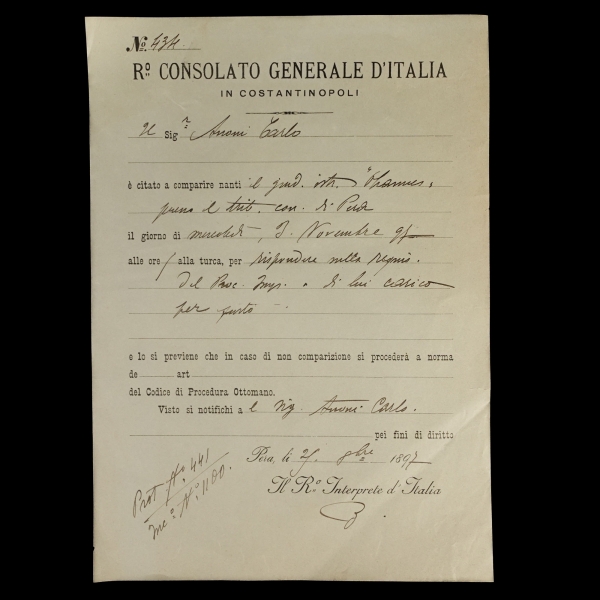 No. 434
Ro. CONSOLATO GENERALE D'ITALIA
IN COSTANTINOPOLI
Il Sigr Anoni Carlo
è citato a comparire nanti il giud. istr. Ohannes,
presso il trib. corr. di Pera
il giorno di mercoledì, 3 Novembre 97
alle ore alla turca, per rispondere nella requis.
del Proc. Imp. a di lui carico
per furto
e lo si previene che in caso di non comparizione si procederà a norma
de art
del Codice di Procedura Ottomano.
Visto si notifichi a l Sig. Anoni Carlo.
pei fini di diritto
Pera, li 8bre 1897
Il Ro. Interprete d'Italia
Prot No. 441
No. 1100.